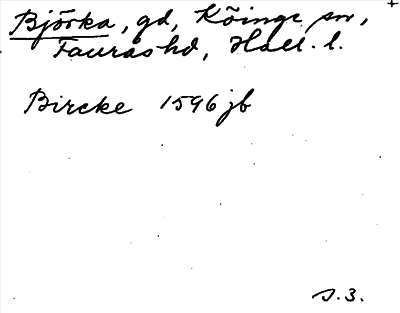 Björka, gd, Köinge sn,
Faurås hd, Hall. l.
Bircke 1596 jb
s. 3.